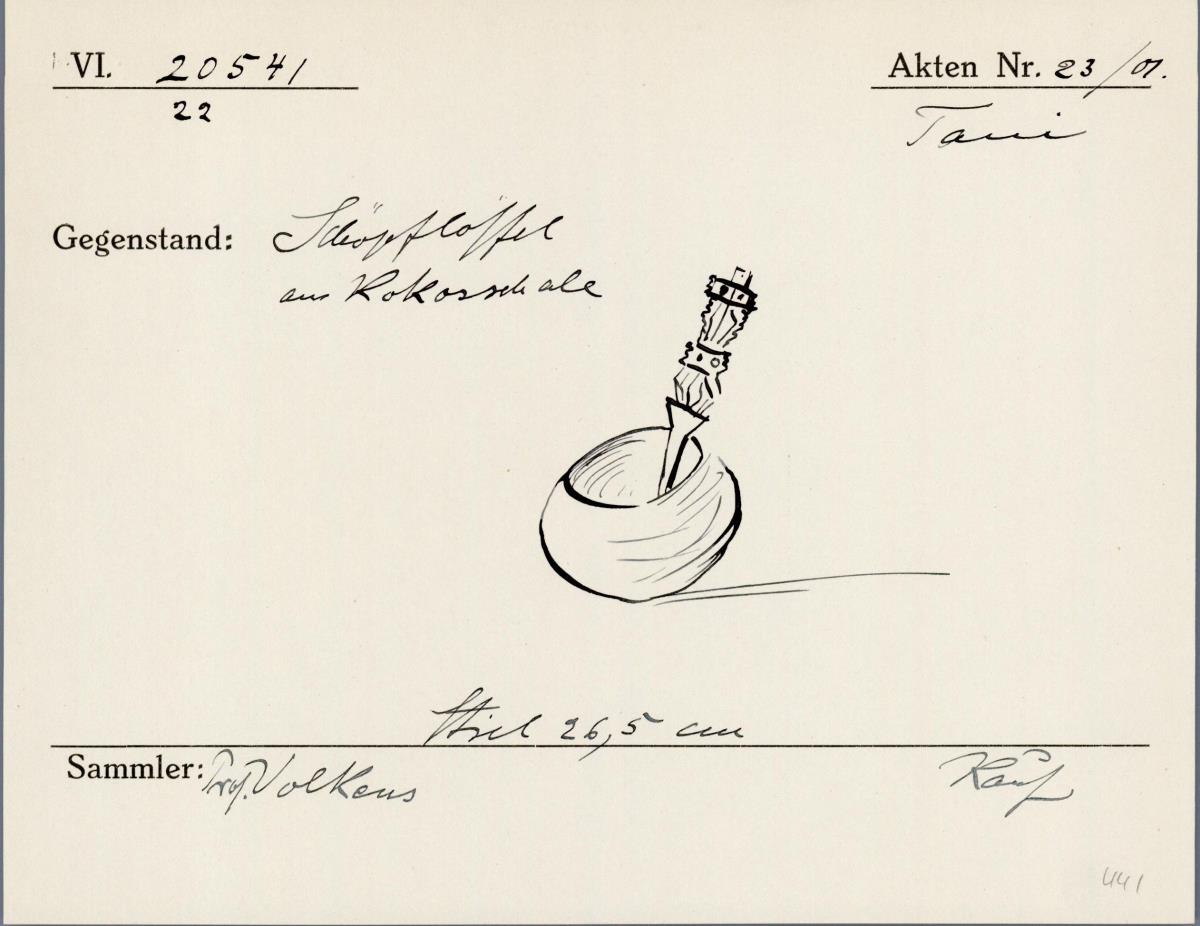 VI. 20541
22
Akten Nr. 23/01.
Taui
Gegenstand: Schöpflöffel
aus Kokosschale
Stiel 26,5 cm
Sammler: Prof. Volkens
Kauf
441